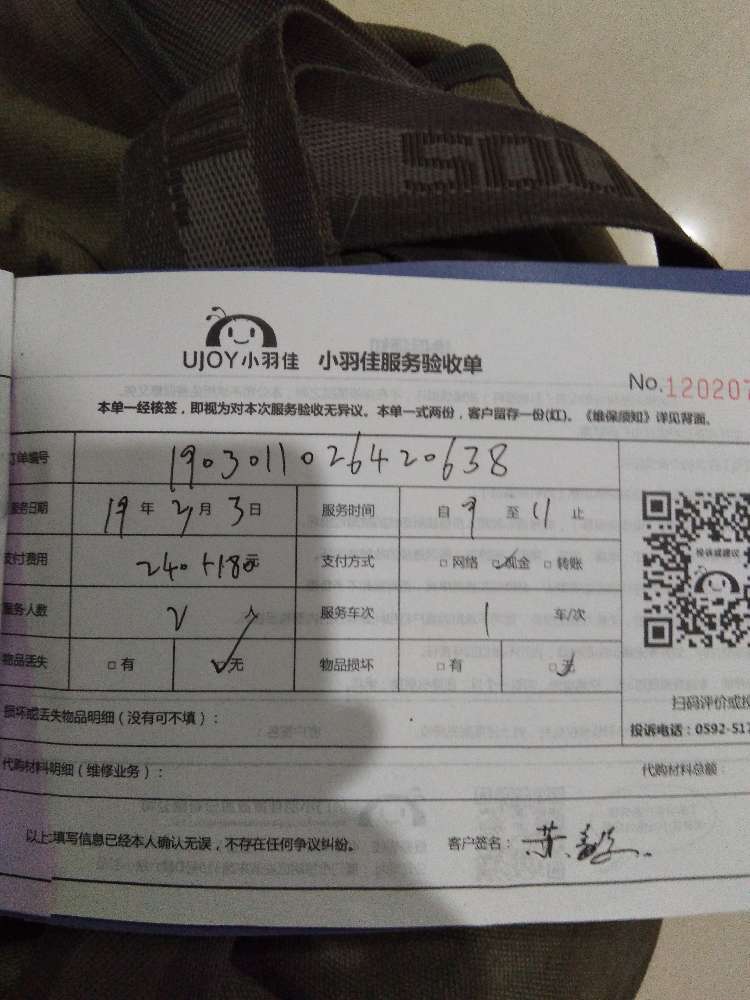 SOU
UJOY小羽佳 小羽佳服务验收单
No.120207
本单一经核签，即视为对本次服务验收无异议。本单一式两份，客户留存一份(红)。《维保须知》详见背面。
订单编号 1903011026420638
服务日期 19年 2月 3日 服务时间 自 9 至 11 止
支付费用 240+180元 支付方式 □网络 ☑现金 □转账
投诉或建议
服务人数 2 人 服务车次 1 车/次
物品丢失 □有 ☑无 物品损坏 □有 ☑无
扫码评价或投
损坏或丢失物品明细（没有可不填）：
投诉电话：0592-517
代购材料明细（维修业务）：
代购材料总额：
以上填写信息已经本人确认无误，不存在任何争议纠纷。 客户签名：